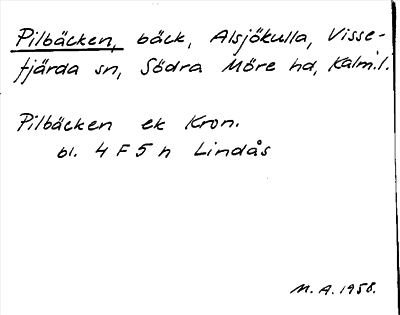 Pilbäcken, bäck, Alsjökulla, Visse-
fjärda sn, Södra Möre hd, Kalm.l.
Pilbäcken ek Kron.
bl. 4 F 5 h Lindås
M. A. 1958.